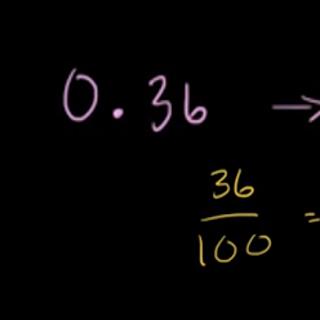 0.36 →
36
100 =